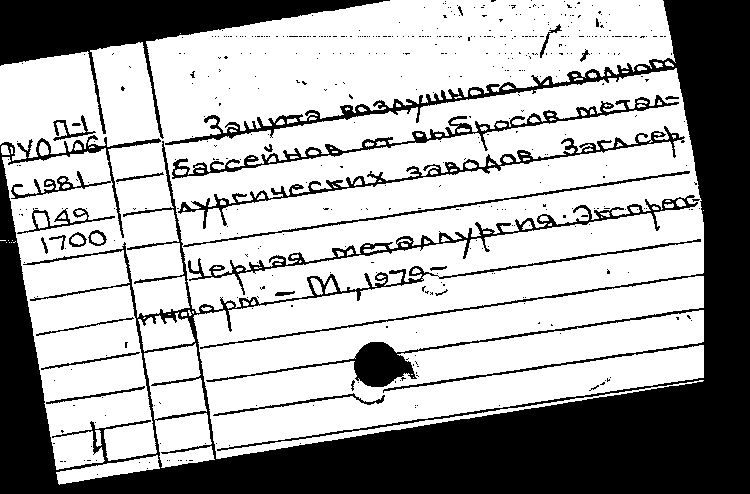 П-1
ФУО 106
С 1981
П49
1700
Защита воздушного и водного
бассейнов от выбросов метал-
лургических заводов. Загл. сер.
Черная металлургия. Экспресс
информ. – М., 1979–
Ч